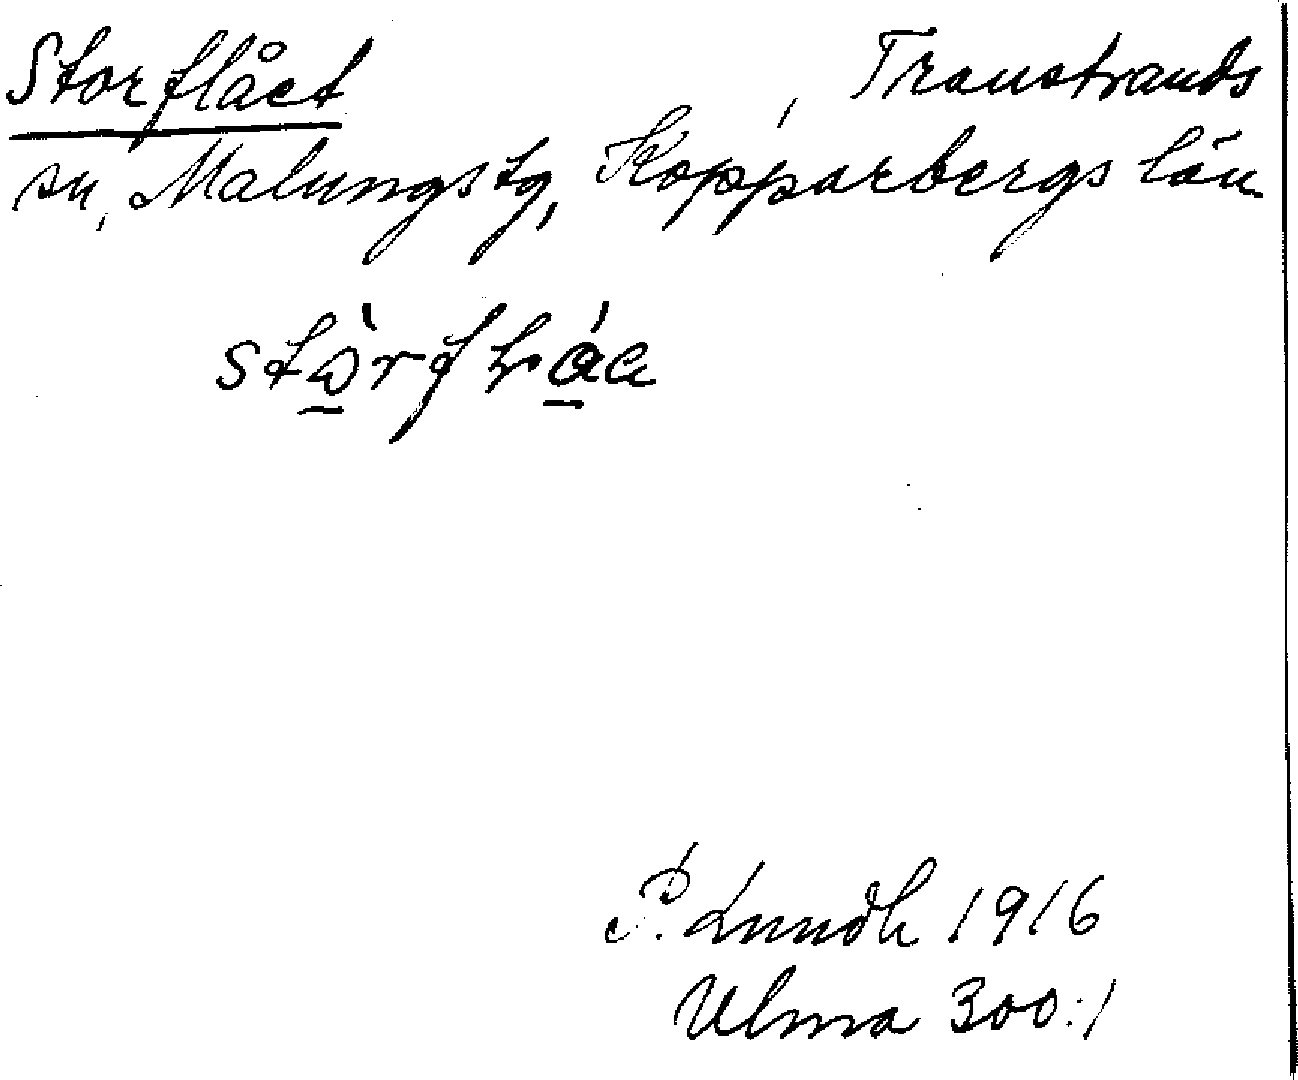 Storflået Transtrands
sn, Malungs tg, Kopparbergs län
P. Lundh 1916
Ulma 300:1